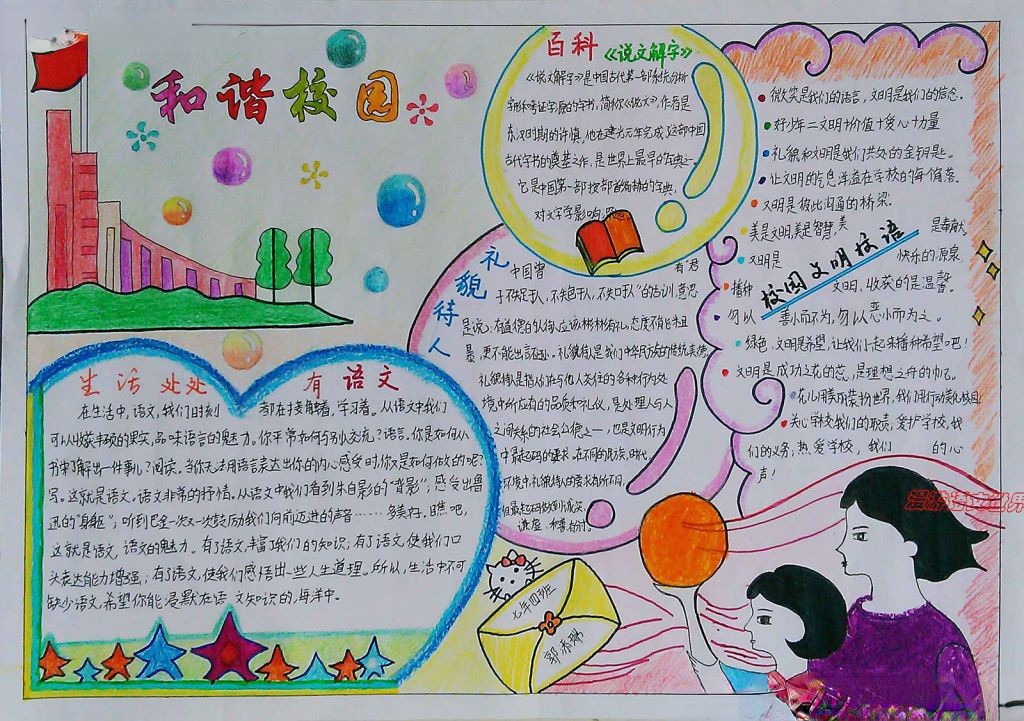 和谐校园
百科《说文解字》
《说文解字》是中国古代第一部系统分析
字形和考证字源的字书,简称《说文》,作者是
东汉时期的许慎,他在建光元年完成,这部中国
古代字书的奠基之作,是世界上最早的字典之一。
它是中国第一部按部首编排的字典,
对文字学影响
礼貌待人
中国曾 有“君
子不失足于人,不失色于人,不失口于人”的古训,意思
是说:有道德的人待人应该彬彬有礼,态度不能粗
暴,更不能出言不逊。礼貌待人是我们中华民族的传统美德
礼貌待人是指人们在与他人交往的各种行为处
境中所应有的品质和礼仪,是处理人与人
之间关系的社会公德之一,也是文明行为
中最起码的要求。在不同的民族,时代,
环境中礼貌待人的要求有所不同,
但最起码做到诚恳,
谦虚、和善
微笑是我们的语言,文明是我们的信念。
好少年=文明+价值+爱心+力量
礼貌和文明是我们共处的金钥匙。
让文明的气息洋溢在学校的每个角落。
文明是彼此沟通的桥梁。
美是文明,美是智慧,美 是奉献
文明是 快乐的源泉
播种 文明,收获的是温馨。
勿以 善小而不为,勿以恶小而为之。
校园文明校语
绿色,文明是希望,让我们一起来播种希望吧!
文明是成功之花的蕊,是理想之舟的帆。
花儿用美丽装扮世界,我们用行动美化校园
关心学校我们的职责,爱护学校,我
们的义务,热爱学校,我们 的心
声!
生活处处 有语文
在生活中,语文,我们时刻 都在接触着,学习着。从语文中我们
可以收获丰硕的果实,品味语言的魅力。你平常如何与别人交流?语言。你是如何从
书中了解出一件事儿?阅读。当你无法用语言表达出你的内心感受时,你又是如何做的呢?
写。这就是语文,语文非常的抒情。从语文中我们看到朱自清的“背影”,感受出鲁
迅的“身躯”,听到巴金一次又一次鼓励我们向前迈进的声音……多美好。瞧吧,
这就是语文,语文的魅力。有了语文,丰富了我们的知识;有了语文,使我们口
头表达能力增强;有了语文,使我们感悟出一些人生道理。所以,生活中不可
缺少语文,希望你能浸默在语文知识的海洋中。
七年四班
漫游语文世界